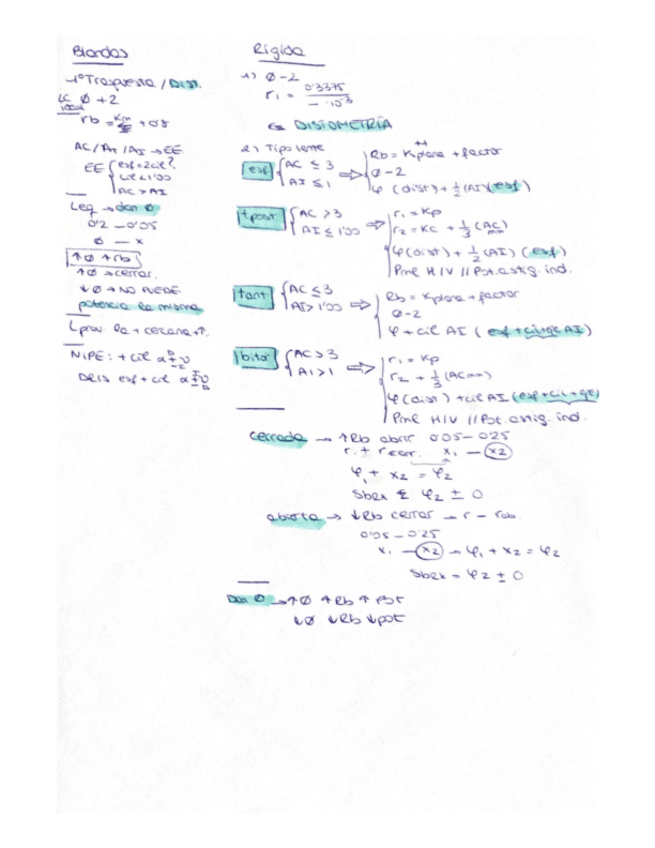 Blandas
1º Traspuesta / DIST.
LC Ø + 2
rb = Km + 0'8
AC / At / AI → EE
EE { esf = 2cil?
cil < 1'00
AC > AI
Leq → dan Ø
0'2 – 0'05
Ø – x
↑Ø ↑rb
↑Ø → cerrar.
↓Ø → NO PUEDE
potencia la misma
NIPE: + cil
esf + cil
Rígida
1) Ø - 2
r1 = 0'3375 / – · 10⁻³
DISTOMETRÍA
2) Tipo lente
esf { AC ≤ 3 AI ≤ 1 ⇒ { Rb = Kplana + factor
Ø - 2
φ (dist) + 1/2 (AI) (esf)
tpost { AC > 3 AI ≤ 1'00 ⇒ { r1 = Kp
r2 = Kc + 1/3 (AC mm)
φ (dist) + 1/2 (AI) (esf)
Pml H/V // Pot. astig. ind.
tant { AC ≤ 3 AI > 1'00 ⇒ { Rb = Kplana + factor
Ø - 2
φ + cil AI (esf + cil + qe AI)
bitor { AC > 3 AI > 1 ⇒ { r1 = Kp
r2 + 1/3 (AC mm)
φ (dist) + cil AI (esf + cil + qe)
Pml H/V // Pot. astig. ind.
cerrada → ↑Rb abrir 0'05 - 0'25
x1 – x2
φ1 + x2 = φ2
Sbrx φ2 ± 0
abierta → ↓Rb cerrar → r – rab.
0'05 – 0'25
x1 – x2 → φ1 + x2 = φ2
Sbrx = φ2 ± 0
Dan Ø → ↑Ø ↑Rb ↑Pot
↓Ø ↓Rb ↓pot